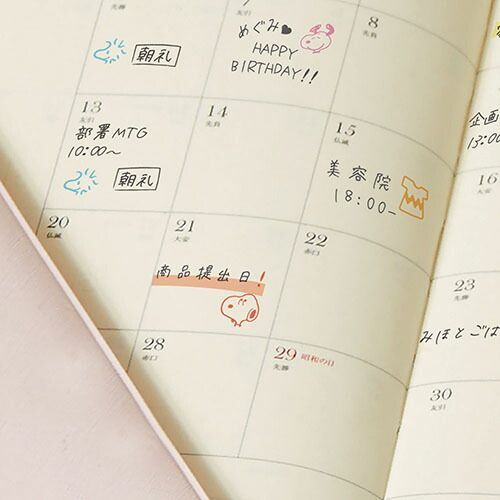 先勝
7
めぐみ♥
HAPPY
BIRTHDAY!!
8
先負
朝礼
13
友引
部署MTG
10:00〜
朝礼
14
先負
15
仏滅
美容院
18:00〜
企画
13:00
16
大安
20
仏滅
21
大安
商品提出日!
22
赤口
23
先勝
みほとごは
28
赤口
29 昭和の日
先勝
30
友引